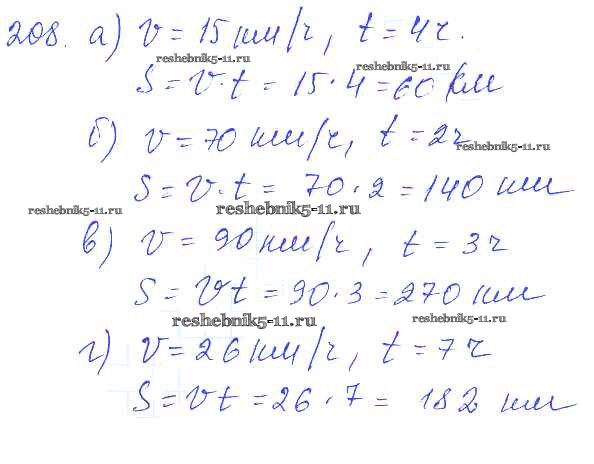 208. а) v = 15 км/ч, t = 4ч.
reshebnik5-11.ru
reshebnik5-11.ru
S = v·t = 15·4 = 60 км
б) v = 70 км/ч, t = 2ч
reshebnik5-11.ru
S = v·t = 70·2 = 140 км
reshebnik5-11.ru
reshebnik5-11.ru
в) v = 90 км/ч, t = 3ч
S = vt = 90·3 = 270 км
reshebnik5-11.ru
reshebnik5-11.ru
г) v = 26 км/ч, t = 7ч
S = vt = 26·7 = 182 км